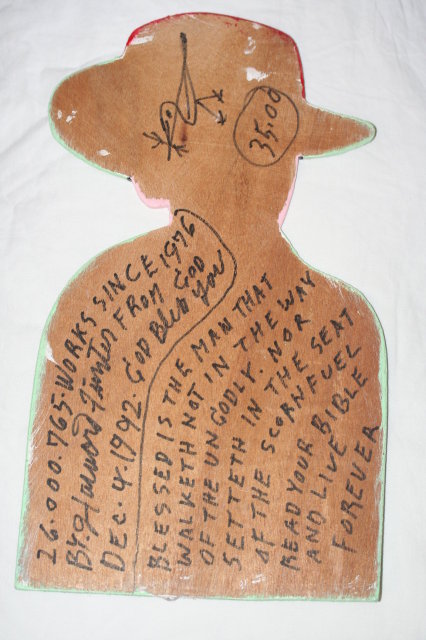 35.00
26.000.765.WORKS SINCE 1976
BY. Howard Finster FROM GOD
DEC. 4. 1992. GOD Bless You
BLESSED IS THE MAN THAT
WALKETH NOT IN THE WAY
OF THE UNGODLY. NOR
SETTETH IN THE SEAT
OF THE SCORNFUEL
READ YOUR BIBLE
AND LIVE
FOREVER